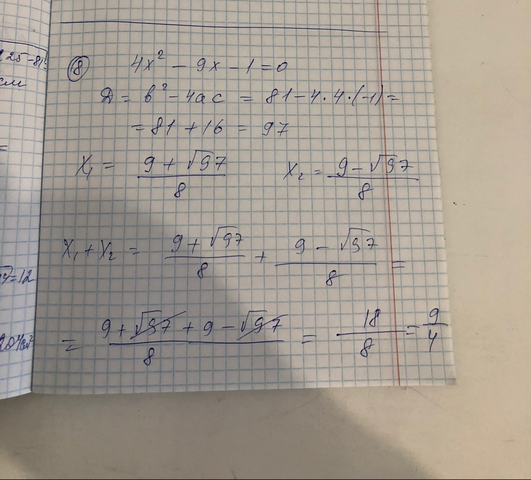 25-81
см
⑧ 4x² - 9x - 1 = 0
Д = b² - 4ac = 81 - 4·4·(-1) =
= 81 + 16 = 97
x₁ = (9 + √97)/8 x₂ = (9 - √97)/8
x₁ + x₂ = (9 + √97)/8 + (9 - √97)/8 =
= (9 + √97 + 9 - √97)/8 = 18/8 = 9/4
=12